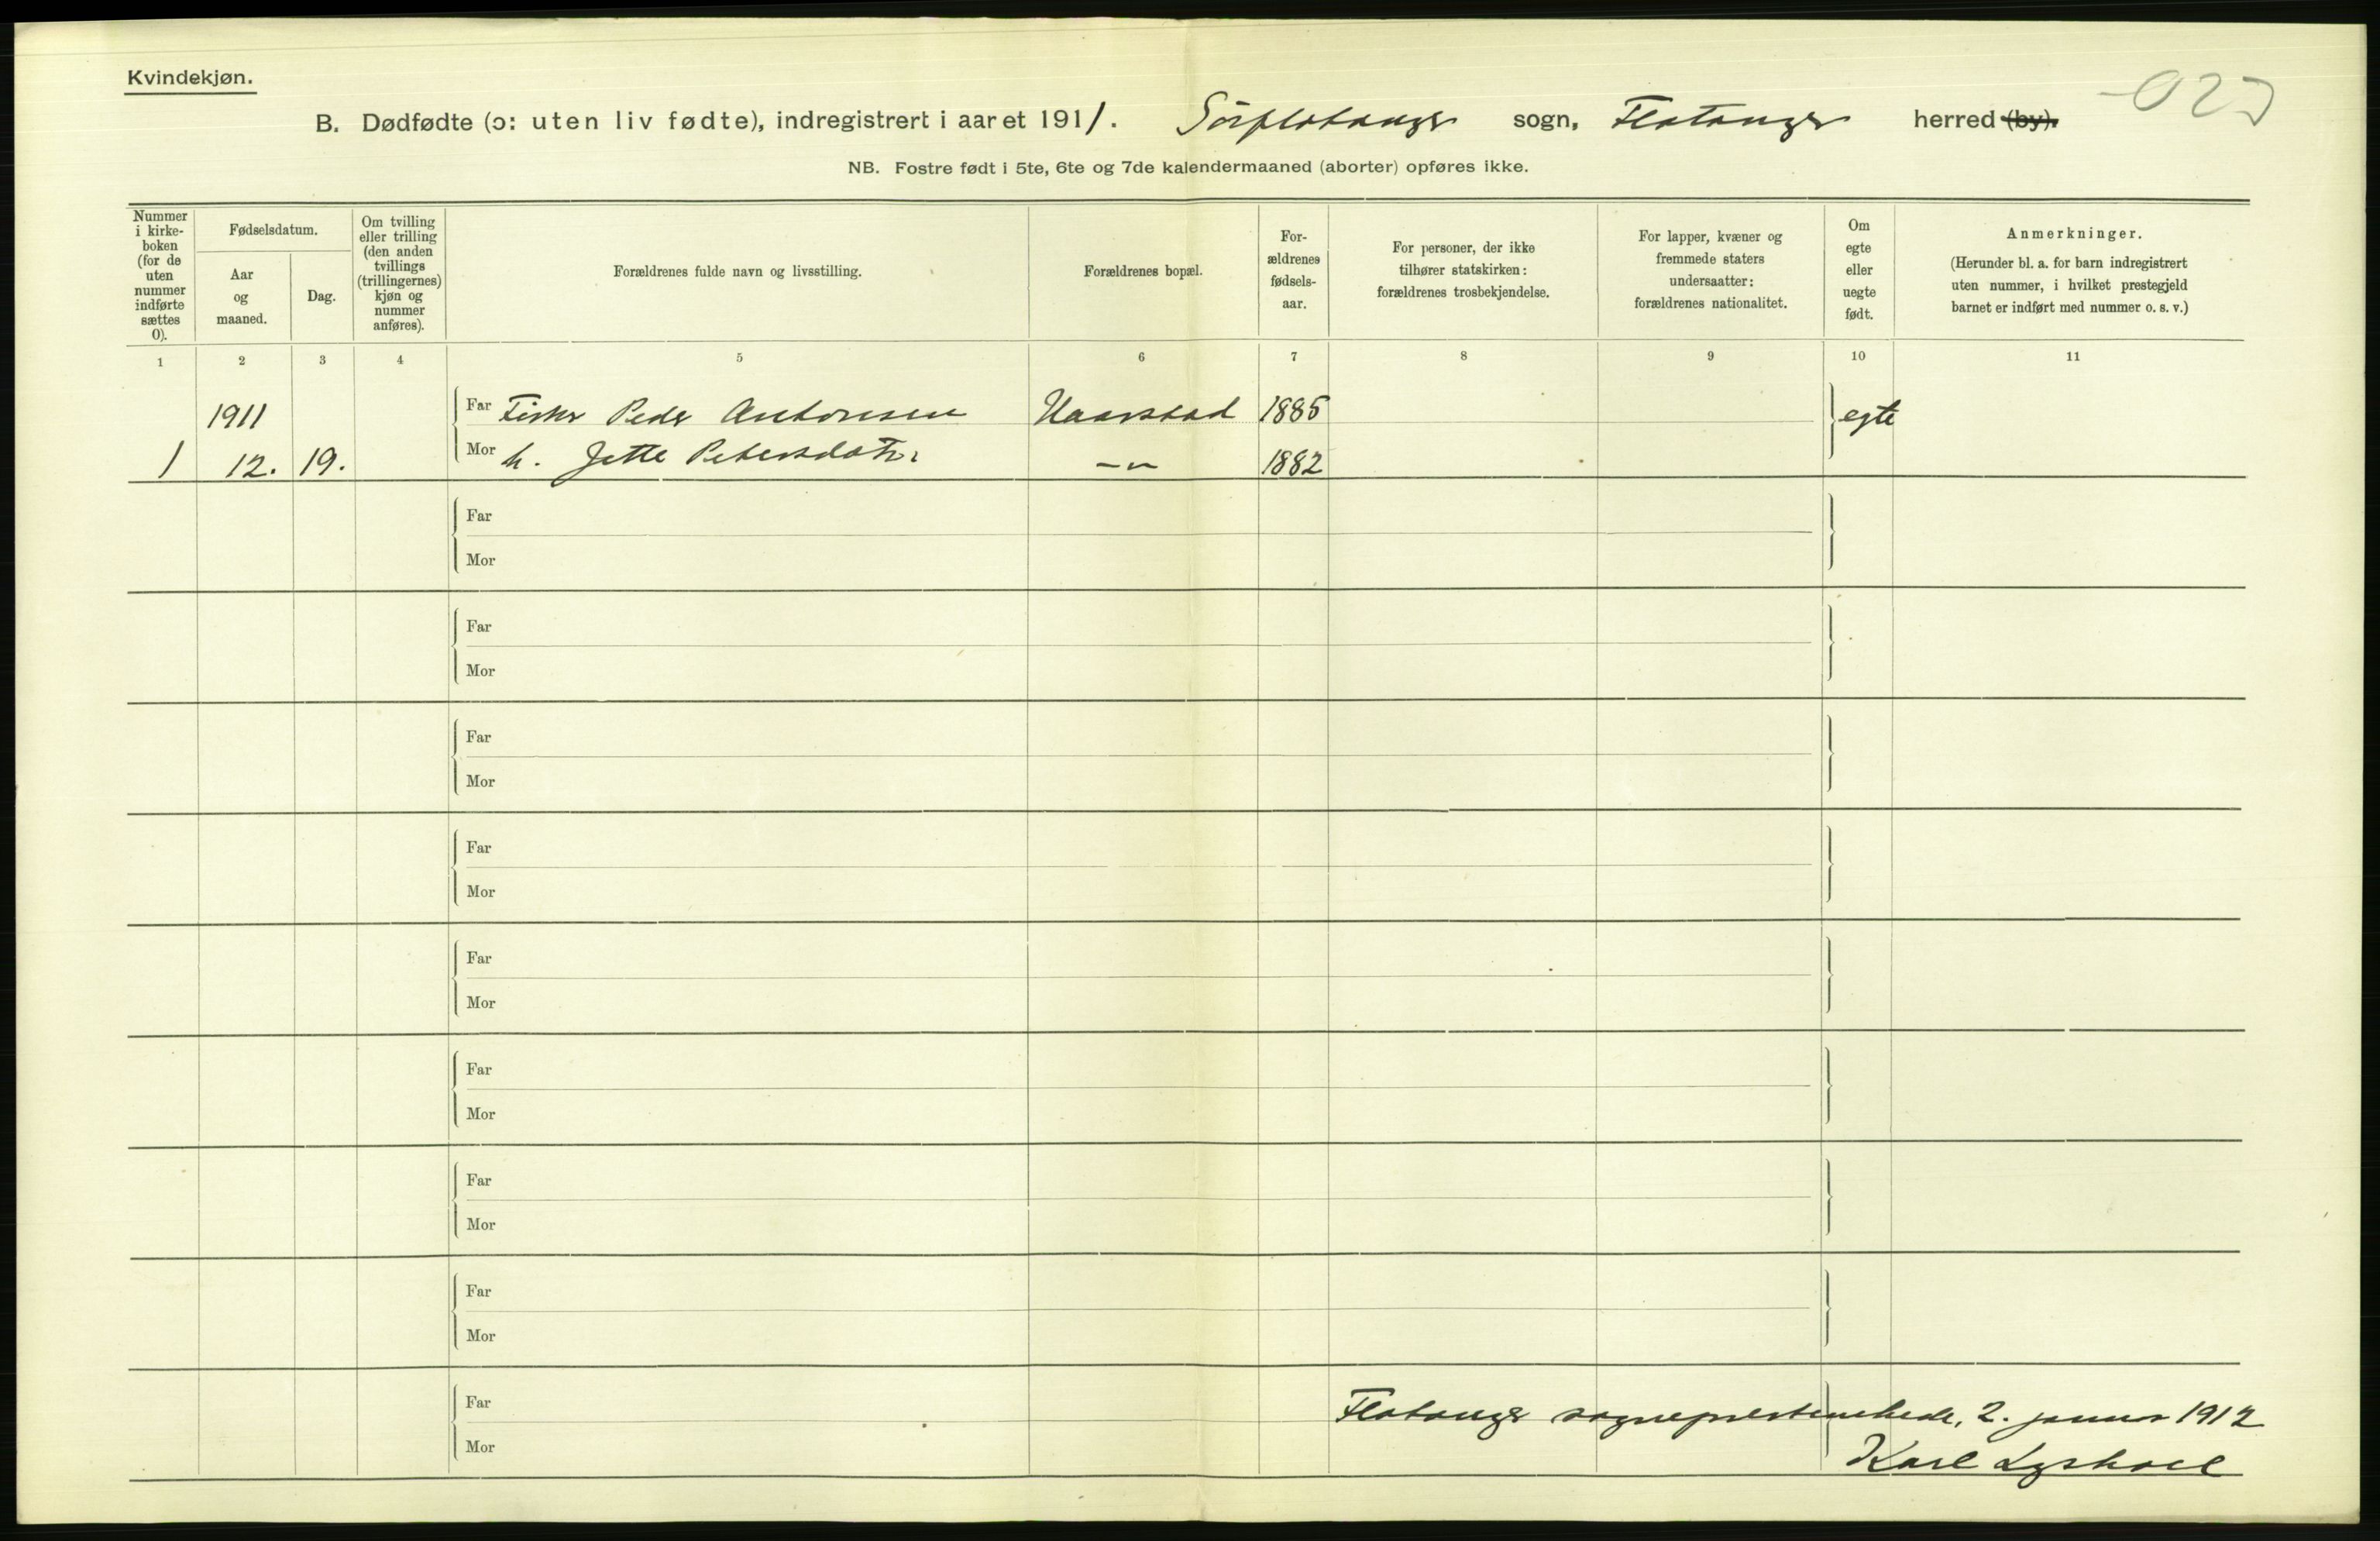 Kvindekjøn.
B. Dødfødte (ɔ: uten liv fødte), indregistrert i aaret 1911. Sörflatanger sogn, Flatanger herred (by).
NB. Fostre født i 5te, 6te og 7de kalendermaaned (aborter) opføres ikke.
Nummer
i kirke-
boken
(for de
uten
nummer
indførte
sættes
0).
Fødselsdatum.
Aar
og
maaned.
Dag.
Om tvilling
eller trilling
(den anden
tvillings
(trillingernes)
kjøn og
nummer
anføres).
Forældrenes fulde navn og livsstilling.
Forældrenes bopæl.
For-
ældrenes
fødsels-
aar.
For personer, der ikke
tilhører statskirken:
forældrenes trosbekjendelse.
For lapper, kvæner og
fremmede staters
undersaatter:
forældrenes nationalitet.
Om
egte
eller
uegte
født.
Anmerkninger.
(Herunder bl. a. for barn indregistrert
uten nummer, i hvilket prestegjeld
barnet er indført med nummer o. s. v.)
1 2 3 4 5 6 7 8 9 10 11
1911 Far Fisker Peder Antonsen 1885 egte
1 12. 19. Mor h. Jette Petersdatr. -"- 1882
Far
Mor
Far
Mor
Far
Mor
Far
Mor
Far
Mor
Far
Mor
Far
Mor
Far
Mor
Far Flatanger sogneprestembede, 2. januar 1912
Mor Karl Lyshoel